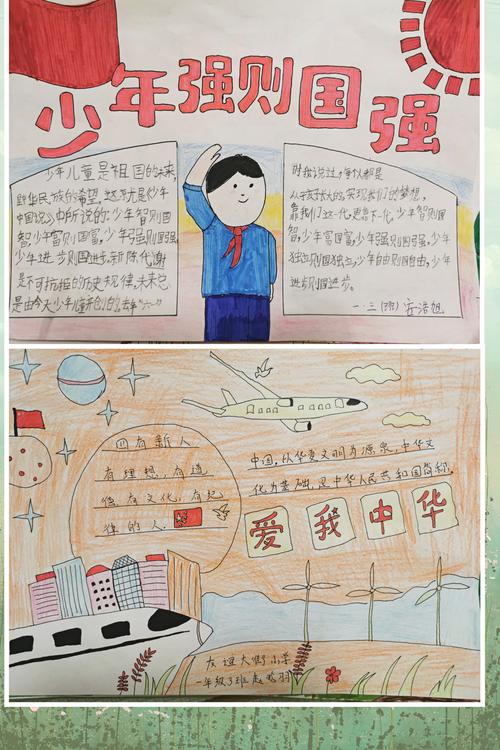 少年强则国强
少年儿童是祖国的未来,
是中华民族的希望,这就是《少年
中国说》中所说的:少年智则国
智,少年富则国富,少年强则国强,
少年进步则国进步,新陈代谢
是不可抗拒的历史规律,未来也
是由今天少年儿童开创的。
时我说过,每个人都是
从孩子长大的,实现我们的梦想,
靠我们这一代,更靠下一代,少年智则国
智,少年富国富,少年强则国强,少年
独立则国独立,少年自由则国自由,少年
进步则国进步。
一.三(班)
四有新人.
有理想,有道
德有文化,有纪
律的人.
中国,从华夏文明为源泉,中华文
化为基础,是中华人民共和国简称.
爱我中华
友谊大街小学
一年级3班